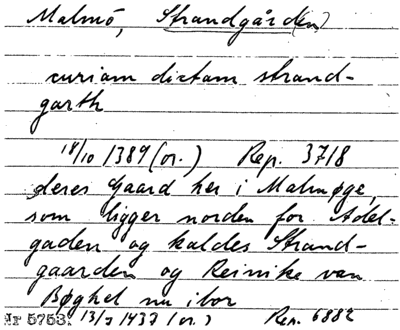 Malmö, Strandgård(en)
curiam dictam strand-
garth
18/10 1389 (or.) Rep. 3718
deres Gaard her i Malmøge,
som ligger norden for Adel-
gaden og kaldes Strand-
gaarden og Reinike van
Bøghel nu ibor
Nr 5753. 13/7 1437 (or.) Rep. 6882